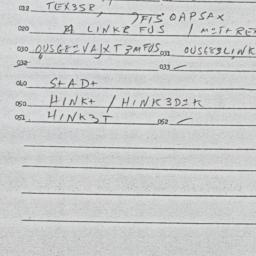 TEX3SR,
7FIS OAPSAX
020 LINKR FUS / M=T+REX
030 OUSG8=VA/XT3MFUS 031 OUSG83LINK
032 033
040 S+AD+
050 HINK+ / HINK3D=K
051 HINK3T 052